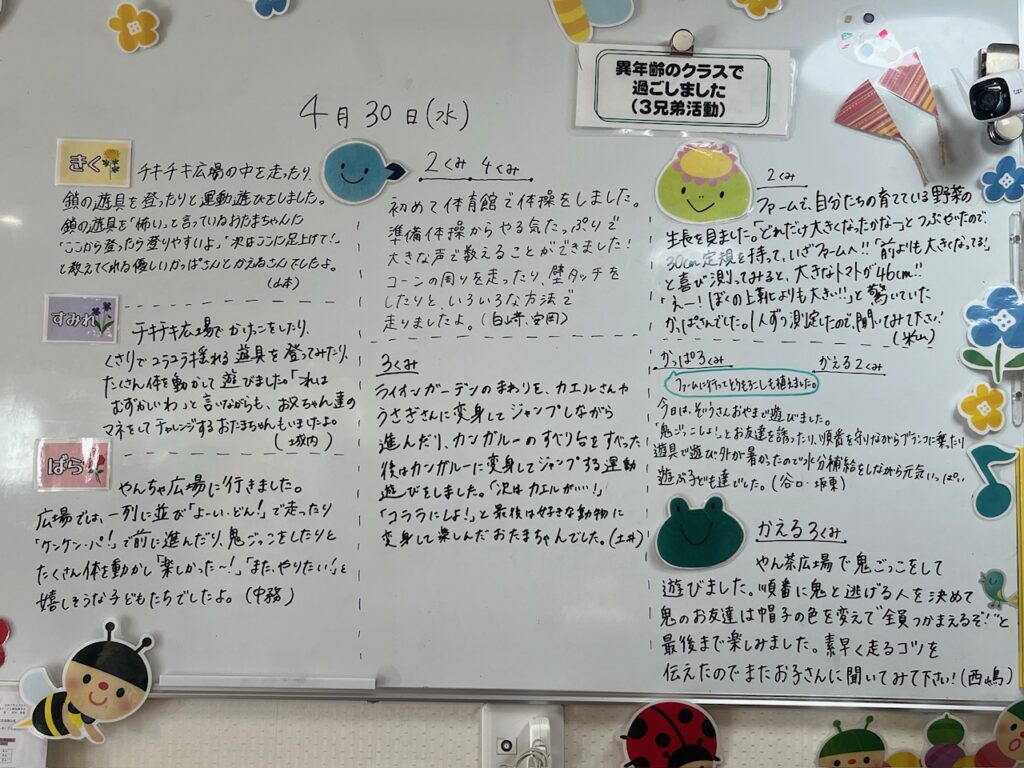 異年齢のクラスで
過ごしました
（3兄弟活動）
4月30日(水)
きく
チキチキ広場の中を走ったり、
鎖の遊具を登ったりと運動遊びをしました。
鎖の遊具を「怖い」と言っているおたまちゃんた
「ここから登ったら登りやすいよ」「次はここに足上げて!」
と教えてくれる優しいかっぱさんとかえるさんでしたよ。
(山本)
すみれ
チキチキ広場でかけっこをしたり、
くさりでユラユラ揺れる遊具を登ってみたり、
たくさん体を動かして遊びました。「これは
むずかしいわ」と言いながらも、お兄ちゃん達の
マネをしてチャレンジするおたまちゃんもいましたよ。
(城内)
ばら
やんちゃ広場に行きました。
広場では、一列に並び「よーい、どん!」で走ったり
「ケンケン・パ!」で前に進んだり、鬼ごっこをしたりと
たくさん体を動かし「楽しかった〜!」「また、やりたい!」と
嬉しそうな子どもたちでしたよ。(中務)
2くみ 4くみ
初めて体育館で体操をしました。
準備体操からやる気たっぷりで
大きな声で数えることができました!
コーンの周りを走ったり、壁タッチを
したりと、いろいろな方法で
走りましたよ。(白崎、安岡)
3くみ
ライオンガーデンのまわりを、カエルさんや
うさぎさんに変身してジャンプしながら
進んだり、カンガルーのすべり台をすべった
後はカンガルーに変身してジャンプする運動
遊びをしました。「次はカエルがいい!」
「コアラにしよ!」と最後は好きな動物に
変身して楽しんだおたまちゃんでした。(土井)
2くみ
ファームで、自分たちの育てている野菜の
生長を見ました。「どれだけ大きくなったかな〜」とつぶやいたので、
30cm定規を持って、いざファームへ!!「前よりも大きくなってる!」
と喜び測ってみると、大きなトマトが46cm!!
「えー!ぼくの上靴よりも大きい!!」と驚いていた
かっぱさんでした。1人ずつ測定したので、聞いてみて下さい!
かっぱ3くみ かえる2くみ
ファームに行ってとうもろこしも植えました。
今日は、ぞうさんおやまで遊びました。
「鬼ごっこしよ!」とお友達を誘ったり、順番を守りながらブランコに乗ったり
遊具で遊び、外が暑かったので水分補給をしながら元気いっぱい
遊ぶ子ども達でした。(谷口・坂東)
かえる3くみ
やん茶広場で鬼ごっこをして
遊びました。順番に鬼と逃げる人を決めて
鬼のお友達は帽子の色を変えて"全員つかまえるぞ!"と
最後まで楽しみました。素早く走るコツを
伝えたのでまたお子さんに聞いてみて下さい!(西嶋)